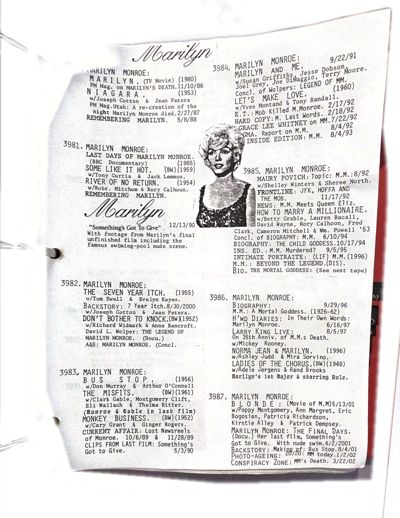 Marilyn
MARILYN MONROE:
MARILYN. (TV Movie) (1980)
PM Mag. on MARILYN'S DEATH.11/10/86
NIAGARA. (1953)
w/Joseph Cotton & Jean Peters
PM Mag.Utah: A re-creation of the
night Marilyn Monroe died.2/27/87
REMEMBERING MARILYN. 5/8/88
3981. MARILYN MONROE:
LAST DAYS OF MARILYN MONROE.
(BBC Documentary) (1985)
SOME LIKE IT HOT. (BW)(1959)
w/Tony Curtis & Jack Lemmon.
RIVER OF NO RETURN. (1954)
w/Robt. Mitchum & Rory Calhoun.
REMEMBERING MARILYN.
Marilyn
"Something's Got To Give" 12/13/90
With footage from Marilyn's final
unfinished film including the
famous swimming-pool nude scene.
3982. MARILYN MONROE:
THE SEVEN YEAR ITCH. (1955)
w/Tom Ewell & Evelyn Keyes.
BACKSTORY: 7 Year Itch.8/30/2000
w/Joseph Cotten & Jean Peters.
DON'T BOTHER TO KNOCK.(BW)(1952)
w/Richard Widmark & Anne Bancroft.
DAVID L. WOLPER: THE LEGEND OF
MARILYN MONROE. (Docu.)
A&E: MARILYN MONROE. (Concl.)
3983. MARILYN MONROE:
BUS STOP. (1956)
w/Don Murray & Arthur O'Connell
THE MISFITS. (BW)(1961)
w/Clark Gable, Montgomery Clift,
Eli Wallach & Thelma Ritter.
(Monroe & Gable in last film)
MONKEY BUSINESS. (BW)(1952)
w/Cary Grant & Ginger Rogers.
CURRENT AFFAIR: Lost Newsreels
of Monroe. 10/6/89 & 11/28/89
CLIPS FROM LAST FILM: Something's
Got to Give. 5/3/90
3984. MARILYN MONROE: 9/22/91
MARILYN AND ME.
w/Susan Griffiths, Jesse Dobson,
Joel Grey, Joe DiMaggio, Terry Moore.
Concl. of Wolpers: LEGEND OF MM.
LET'S MAKE LOVE. (1960)
w/Yves Montand & Tony Randall.
E.T.: Mob Killed M.Monroe.2/17/92
HARD COPY: M. Last Words. 2/18/92
GRACE LEE WHITNEY on MM.7/22/92
Report on M.M. 8/4/92
INSIDE EDITION: M.M. 8/4/93
3985. MARILYN MONROE:
MAURY POVICH: Topic: M.M.:8/92
w/Shelley Winters & Sheree North.
FRONTLINE: JFK, HOFFA AND
THE MOB. 11/17/92
NEWS: M.M. Meets Queen Eliz.
HOW TO MARRY A MILLIONAIRE.
w/Betty Grable, Lauren Bacall,
David Wayne, Rory Calhoun, Fred
Clark, Cameron Mitchell & Wm. Powell '53
Concl. of BIOGRAPHY: M.M. 6/10/94
BIOGRAPHY: THE CHILD GODDESS.10/17/94
INS. ED.: M.M. Murdered? 9/5/95
INTIMATE PORTRAITE: (LIF) M.M.(1996)
M.M.: BEYOND THE LEGEND.(DIS).
BIO. THE MORTAL GODDESS: (See next tape)
3986. MARILYN MONROE:
BIOGRAPHY: 9/29/96
M.M.: A Mortal Goddess. (1926-62)
H'WD DIARIES: In Their Own Words:
Marilyn Monroe. 6/16/97
LARRY KING LIVE: 8/5/97
On 35th Anniv. of M.M.s Death.
w/Mickey Rooney.
NORMA JEAN & MARILYN. (1996)
w/Ashley Judd & Mira Sorvino.
LADIES OF THE CHORUS.(BW)(1948)
w/Adele Jergens & Rand Brooks
Marilyn's 1st Major & starring Role.
3987. MARILYN MONROE:
BLONDE: (Movie of M.M)5/13/01
w/Poppy Montgomery, Ann Margret, Eric
Bogosian, Patricia Richardson,
Kirstie Alley & Patrick Dempsey.
MARILYN MONROE: THE FINAL DAYS.
(Docu.) Her last film, Something's
Got to Give. With nude swim.6/2/2001
BACKSTORY: Making of: Bus Stop.8/4/01
PHOTO-AGEING: 20/20: MM today.1/2/02
CONSPIRACY ZONE: MM's Death. 3/22/02